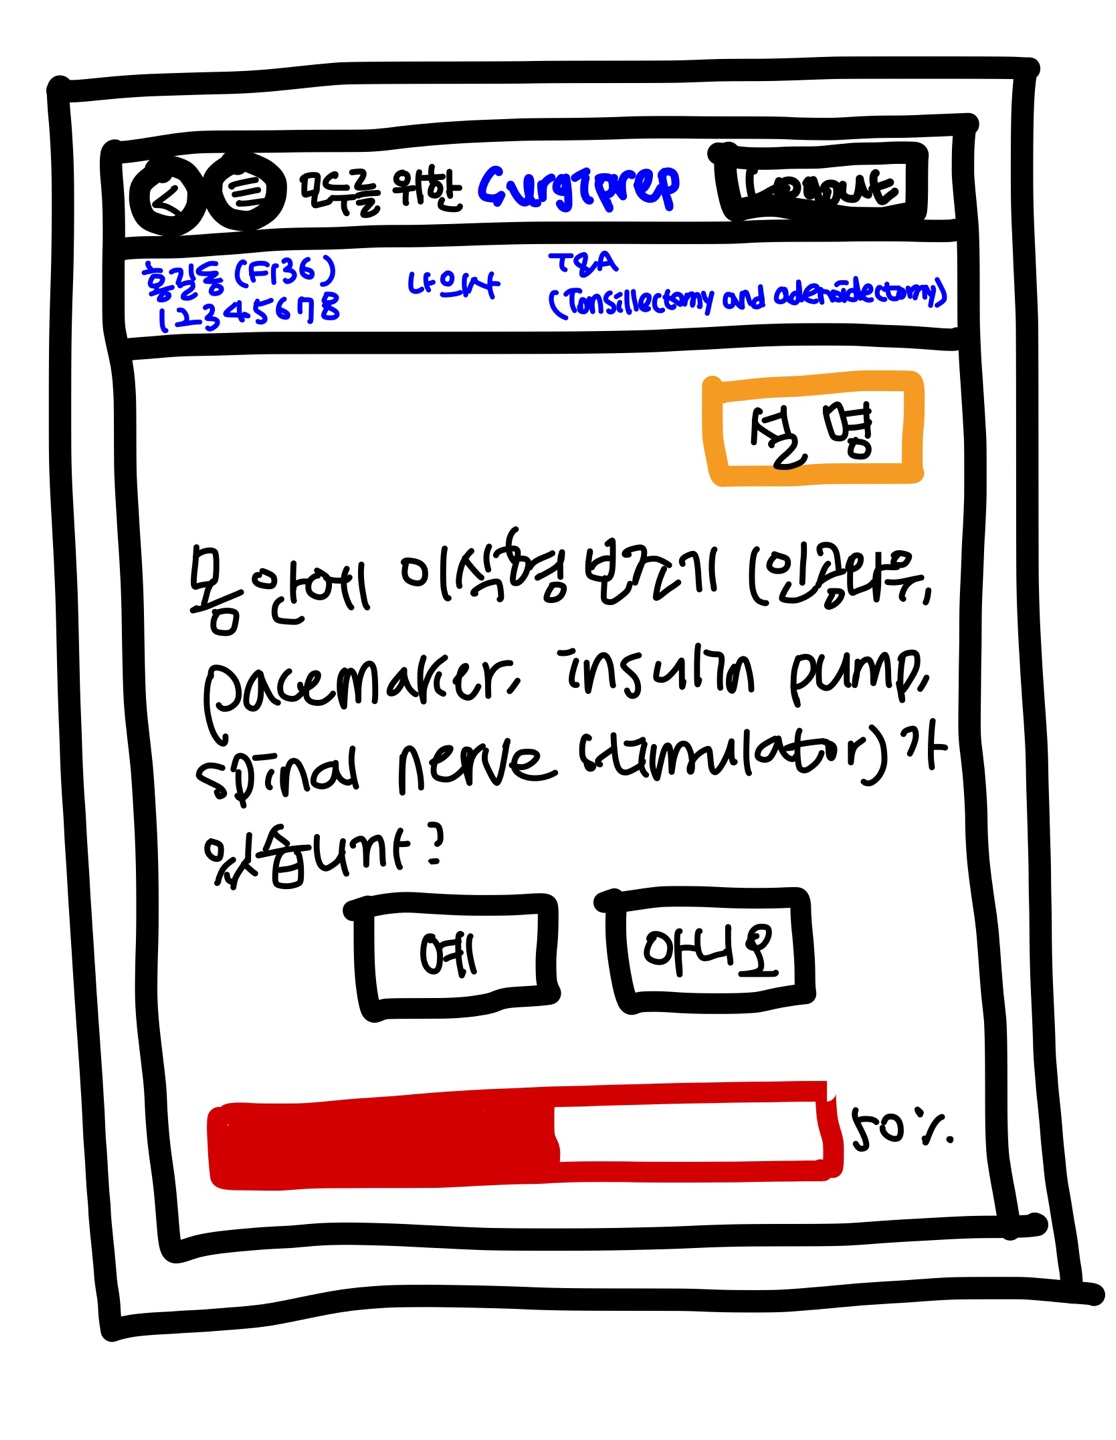 모두를 위한 Surgiprep Logout
홍길동 (F/36)
12345678
나의사
T&A
(Tonsillectomy and adenoidectomy)
설명
몸 안에 이식형 보조기 (인공와우,
pacemaker, insulin pump,
spinal nerve stimulator)가
있습니까?
예
아니오
50%